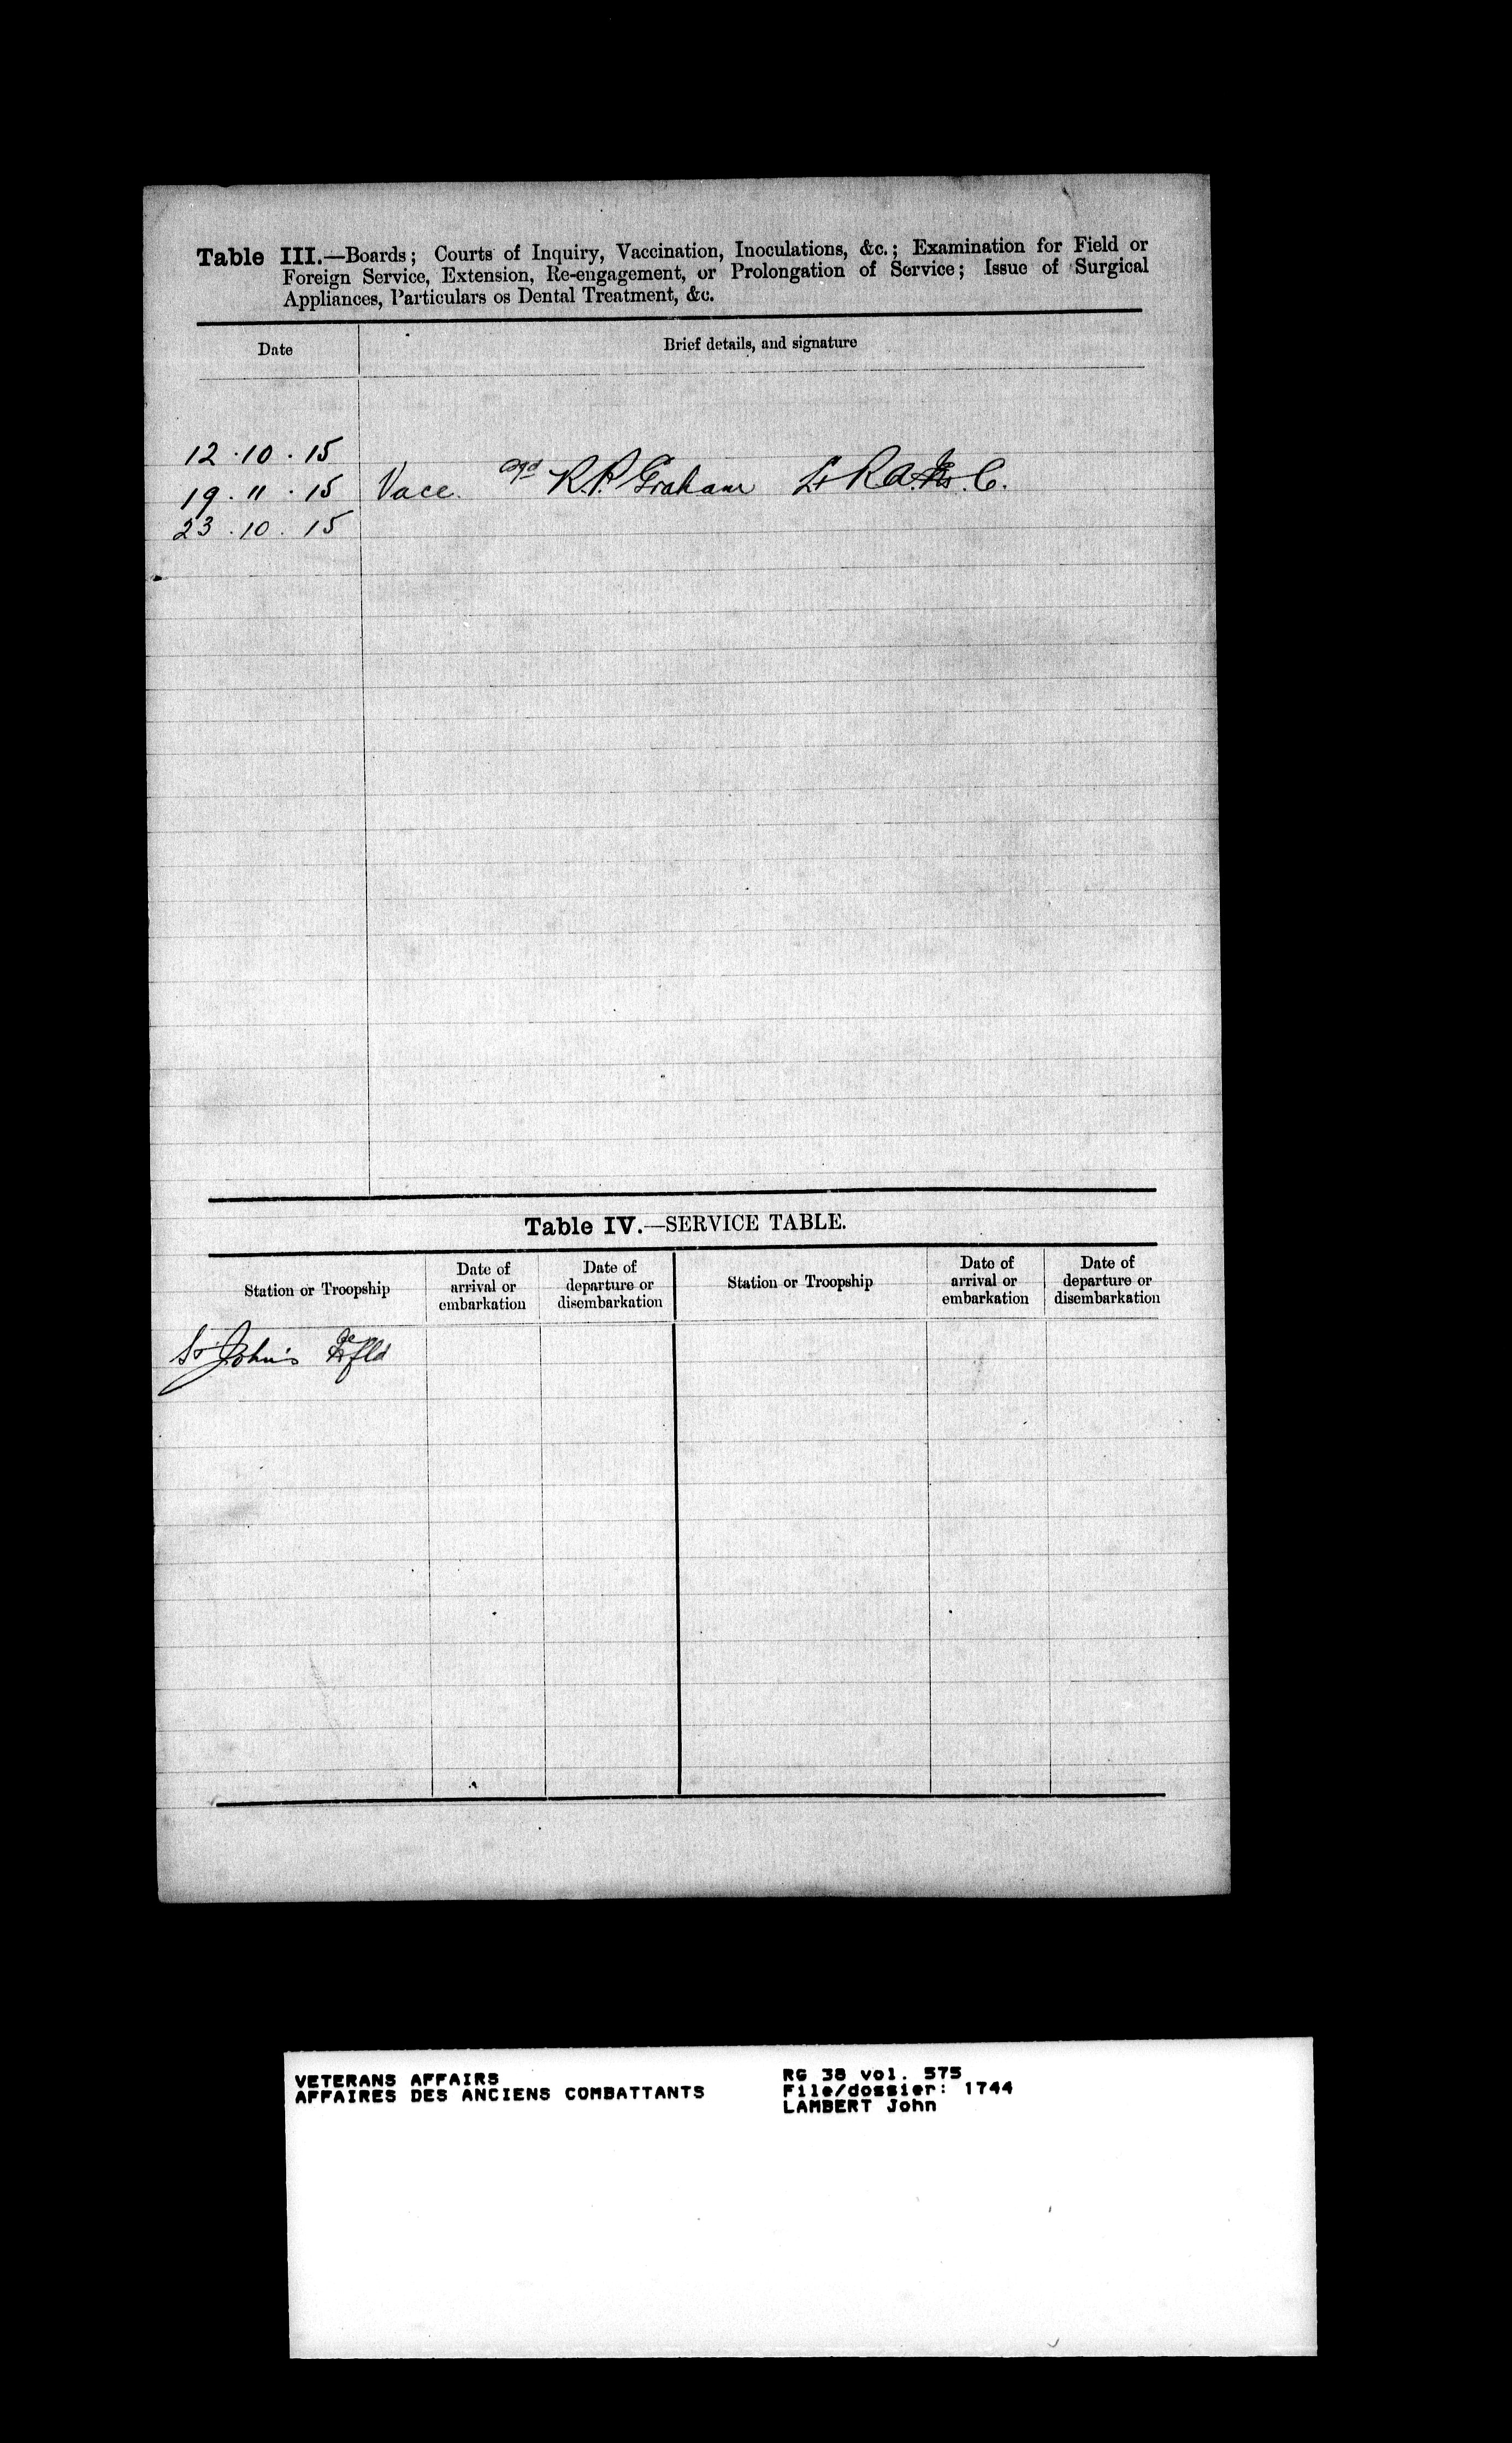 Table III.—Boards; Courts of Inquiry, Vaccination, Inoculations, &c.; Examination for Field or
Foreign Service, Extension, Re-engagement, or Prolongation of Service; Issue of Surgical
Appliances, Particulars os Dental Treatment, &c.
Date
Brief details, and signature
12.10.15
19.11.15 Vacc. sgd R.P. Graham Lt R.A.M.C.
23.10.15
Table IV.—SERVICE TABLE.
Station or Troopship
Date of
arrival or
embarkation
Date of
departure or
disembarkation
Station or Troopship
Date of
arrival or
embarkation
Date of
departure or
disembarkation
St John's
VETERANS AFFAIRS
AFFAIRES DES ANCIENS COMBATTANTS
RG 38 vol. 575
File/dossier: 1744
LAMBERT John